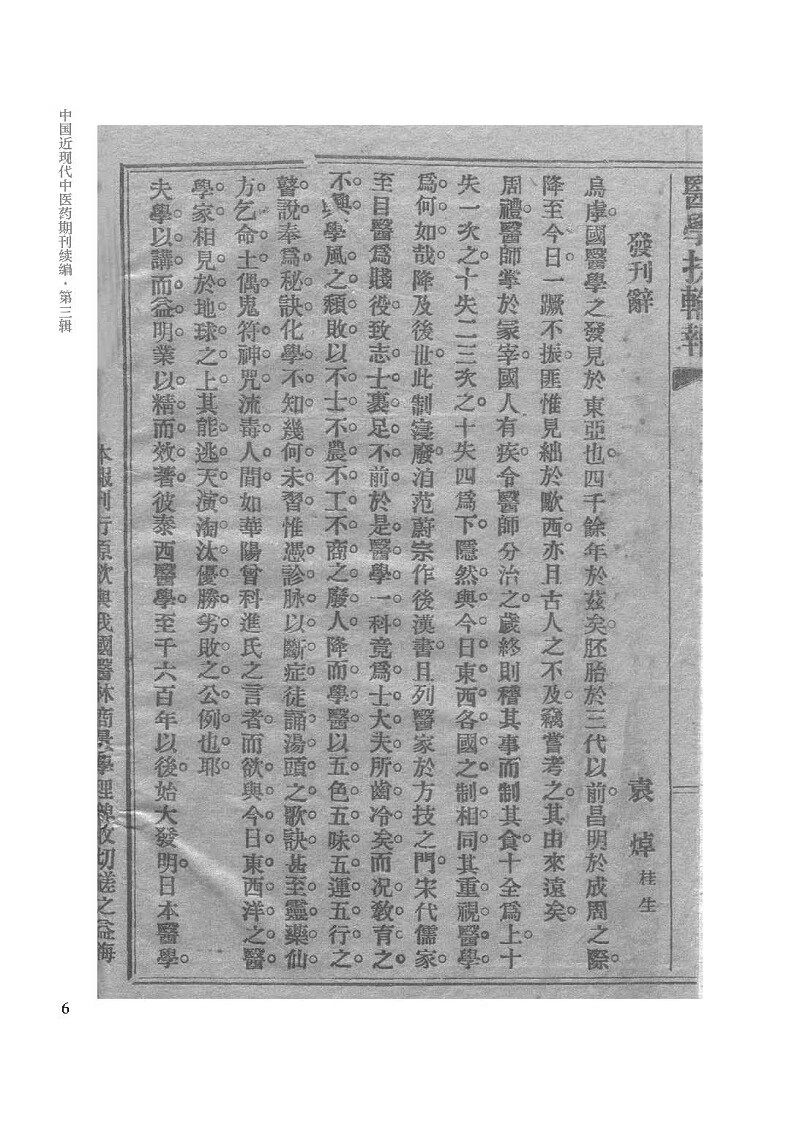 中国近现代中医药期刊续编·第三辑
醫學扶輪報
發刊辭
袁焯桂生
烏虖國醫學之發見於東亞也四千餘年於茲矣。胚胎於三代以前昌明於成周之際。
降至今日一蹶不振。匪惟見絀於歐西亦且古人之不及。竊嘗考之。其由來遠矣。
周禮醫師掌於冢宰。國人有疾。令醫師分治之。歲終則稽其事而制其食。十全爲上。十
失一次之。十失二三次之。十失四爲下。隱然與今日東西各國之制相同。其重視醫學
爲何如哉。降及後世。此制寖廢。洎范蔚宗作後漢書。且列醫家於方技之門。宋代儒家
至目醫爲賤役。致志士裹足不前。於是醫學一科。竟爲士大夫所齒冷矣。而況敎育之
不興。學風之頹敗。以不士不農不工不商之廢人。降而學醫。以五色五味五運五行之
瞽說。奉爲秘訣。化學不知。幾何未習。惟憑診脉以斷症。徒誦湯頭之歌訣。甚至靈藥仙
方。乞命土偶。鬼符神咒。流毒人間。如華陽曾科進氏之言者。而欲與今日東西洋之醫
學家。相見於地球之上。其能逃天演淘汰優勝劣敗之公例也耶。
夫學以講而益明。業以精而效著。彼泰西醫學。至千六百年以後。始大發明。日本醫學。
本報刊行原欲與我國醫林商畏學理藉收切磋之益海
6